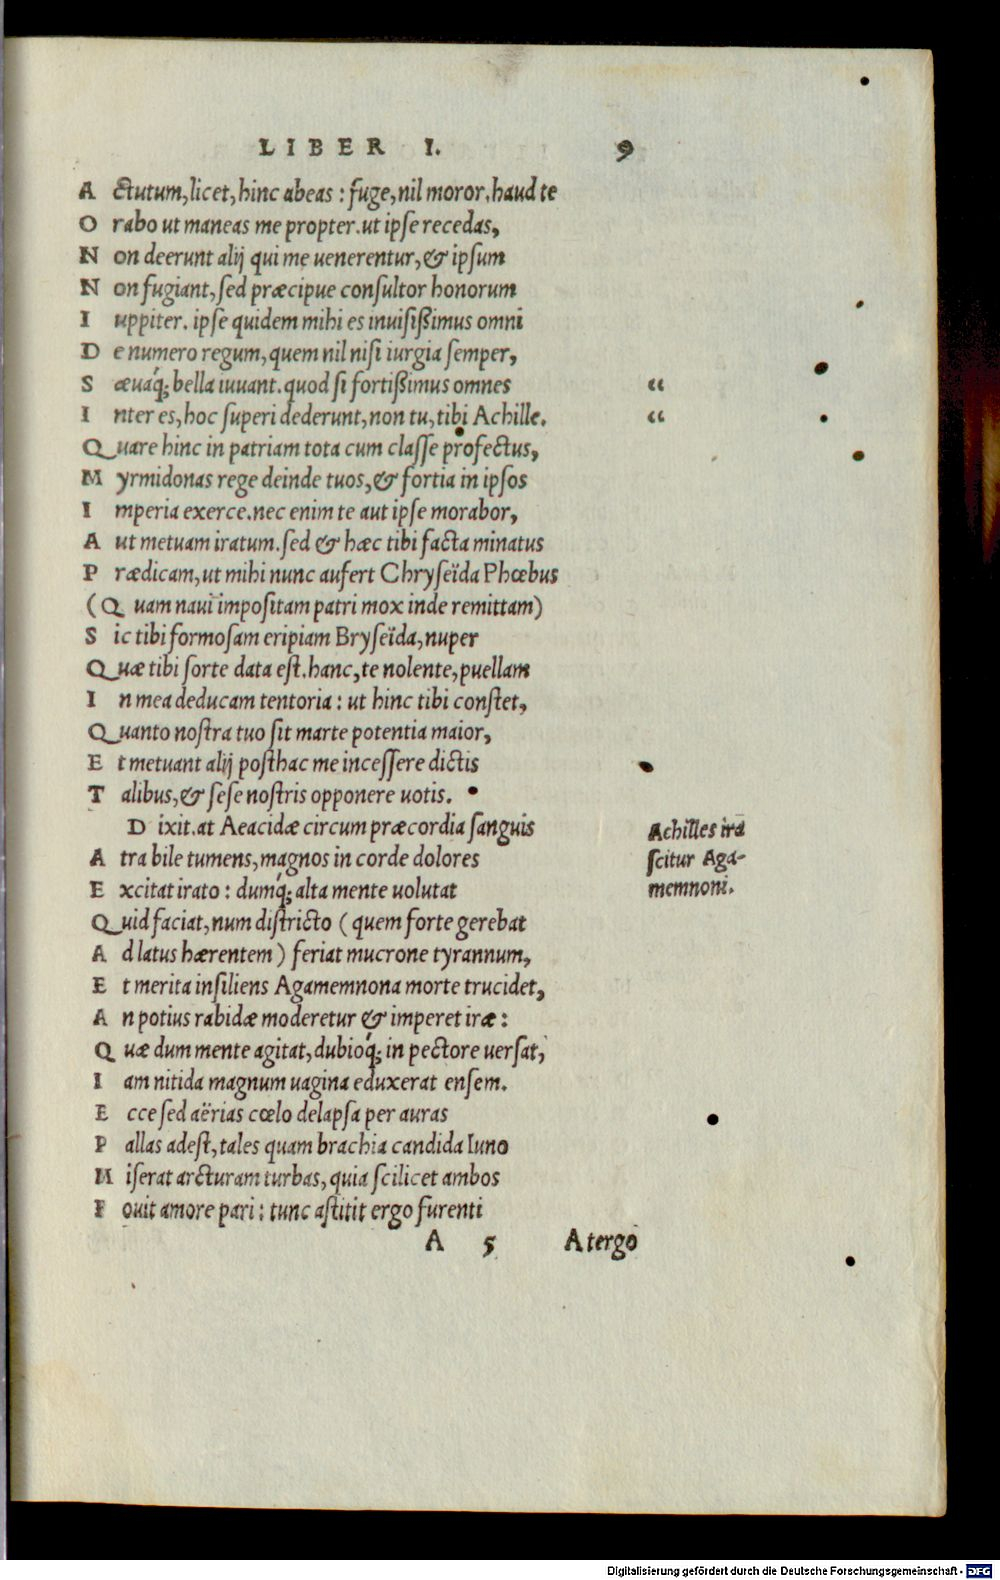 LIBER I. 9
A ctutum, licet, hinc abeas : fuge, nil moror, haud te
O rabo ut maneas me propter. ut ipse recedas,
N on deerunt alij qui me uenerentur, & ipsum
N on fugiant, sed præcipue consultor honorum
I uppiter. ipse quidem mihi es inuisißimus omni
D e numero regum, quem nil nisi iurgia semper,
S æuaq́; bella iuuant. quod si fortißimus omnes “
I nter es, hoc superi dederunt, non tu, tibi Achille. “
Q uare hinc in patriam tota cum classe profectus,
M yrmidonas rege deinde tuos, & fortia in ipsos
I mperia exerce. nec enim te aut ipse morabor,
A ut metuam iratum. sed & hæc tibi facta minatus
P rædicam, ut mihi nunc aufert Chryseïda Phœbus
( Q uam naui impositam patri mox inde remittam)
S ic tibi formosam eripiam Bryseïda, nuper
Q uæ tibi sorte data est. hanc, te nolente, puellam
I n mea deducam tentoria : ut hinc tibi constet,
Q uanto nostra tuo sit marte potentia maior,
E t metuant alij posthac me incessere dictis
T alibus, & sese nostris opponere uotis.
D ixit. at Aeacidæ circum præcordia sanguis
A tra bile tumens, magnos in corde dolores
E xcitat irato : dumq́; alta mente uolutat
Q uid faciat, num districto ( quem forte gerebat
A d latus hærentem ) feriat mucrone tyrannum,
E t merita insiliens Agamemnona morte trucidet,
A n potius rabidæ moderetur & imperet iræ :
Q uæ dum mente agitat, dubioq́; in pectore uersat,
I am nitida magnum uagina eduxerat ensem.
E cce sed aërias cœlo delapsa per auras
P allas adest, tales quam brachia candida Iuno
M iserat arcturam turbas, quia scilicet ambos
F ouit amore pari : tunc astitit ergo furenti
A 5 A tergo
Achilles ira
scitur Aga-
memnoni.
Digitalisierung gefördert durch die Deutsche Forschungsgemeinschaft - DFG